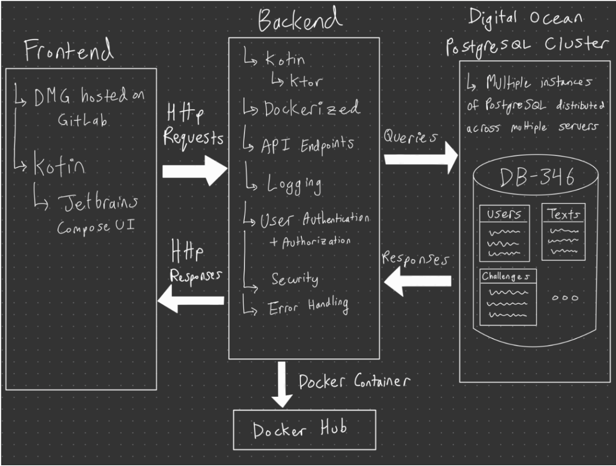 Frontend
DMG hosted on
GitLab
Kotin
Jetbrains
Compose UI
HTTP
Requests
HTTP
Responses
Backend
Kotin
Ktor
Dockerized
API Endpoints
Logging
User Authentication
+ Authorization
Security
Error Handling
Docker Container
Docker Hub
Queries
Responses
Digital Ocean
PostgreSQL Cluster
Multiple instances
of PostgreSQL distributed
across multiple servers
DB-346
Users
Texts
Challenges
ooo